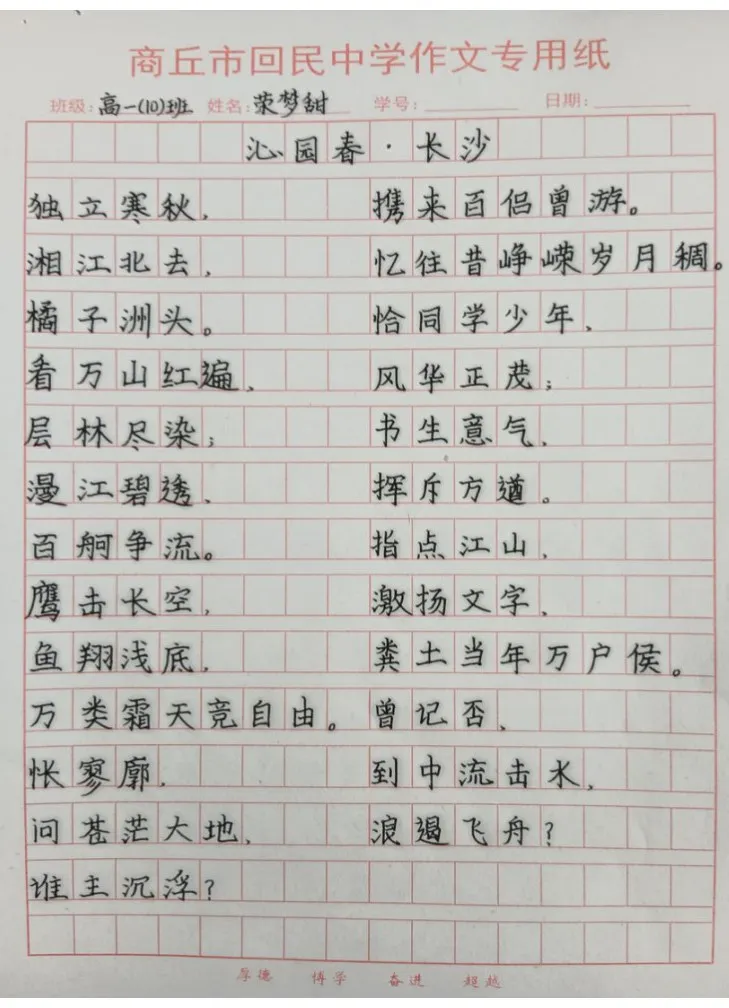 商丘市回民中学作文专用纸
班级：高一(10)班 姓名：荥梦甜 学号： 日期：
沁园春·长沙
独立寒秋，
湘江北去，
橘子洲头。
看万山红遍，
层林尽染；
漫江碧透，
百舸争流。
鹰击长空，
鱼翔浅底，
万类霜天竞自由。
怅寥廓，
问苍茫大地，
谁主沉浮？
携来百侣曾游。
忆往昔峥嵘岁月稠。
恰同学少年，
风华正茂；
书生意气，
挥斥方遒。
指点江山，
激扬文字，
粪土当年万户侯。
曾记否，
到中流击水，
浪遏飞舟？
厚德 博学 奋进 超越